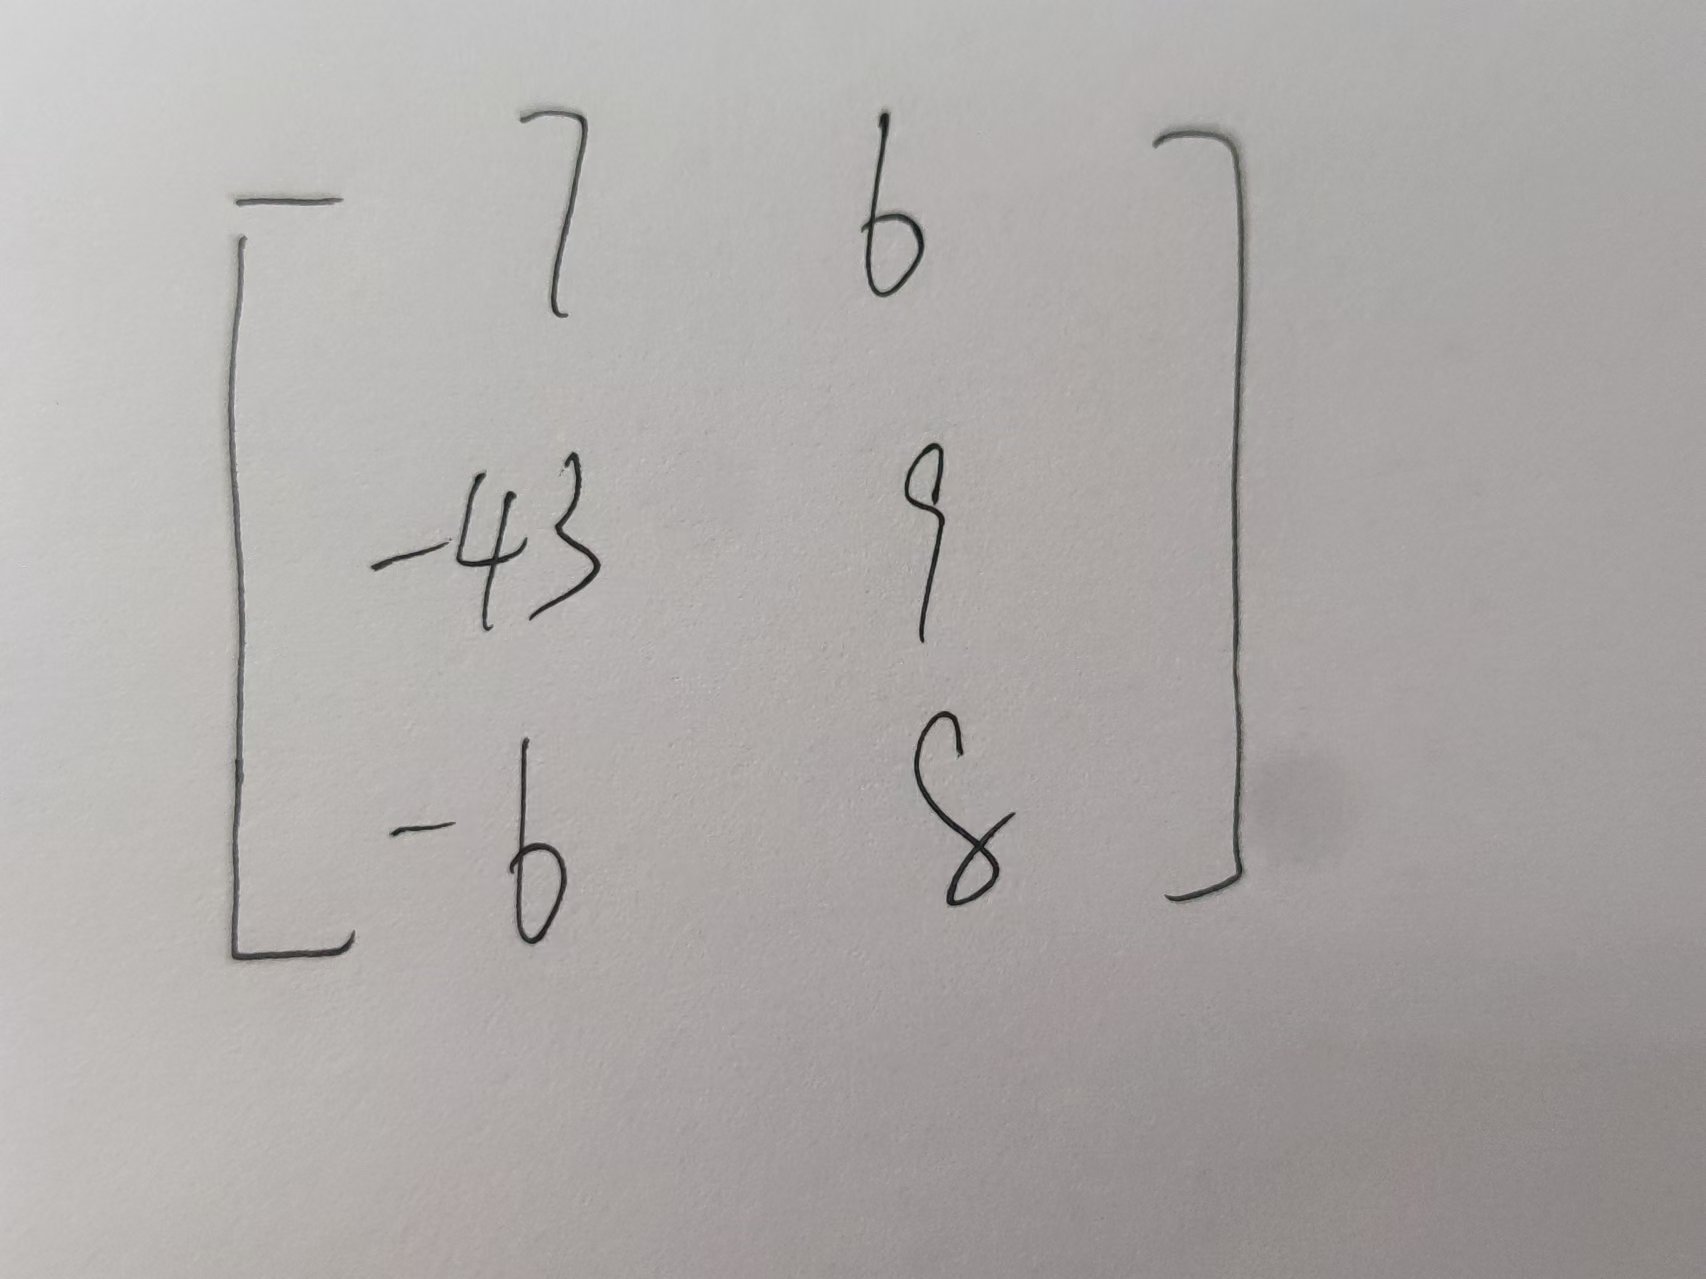 7 6
-43 9
-6 8